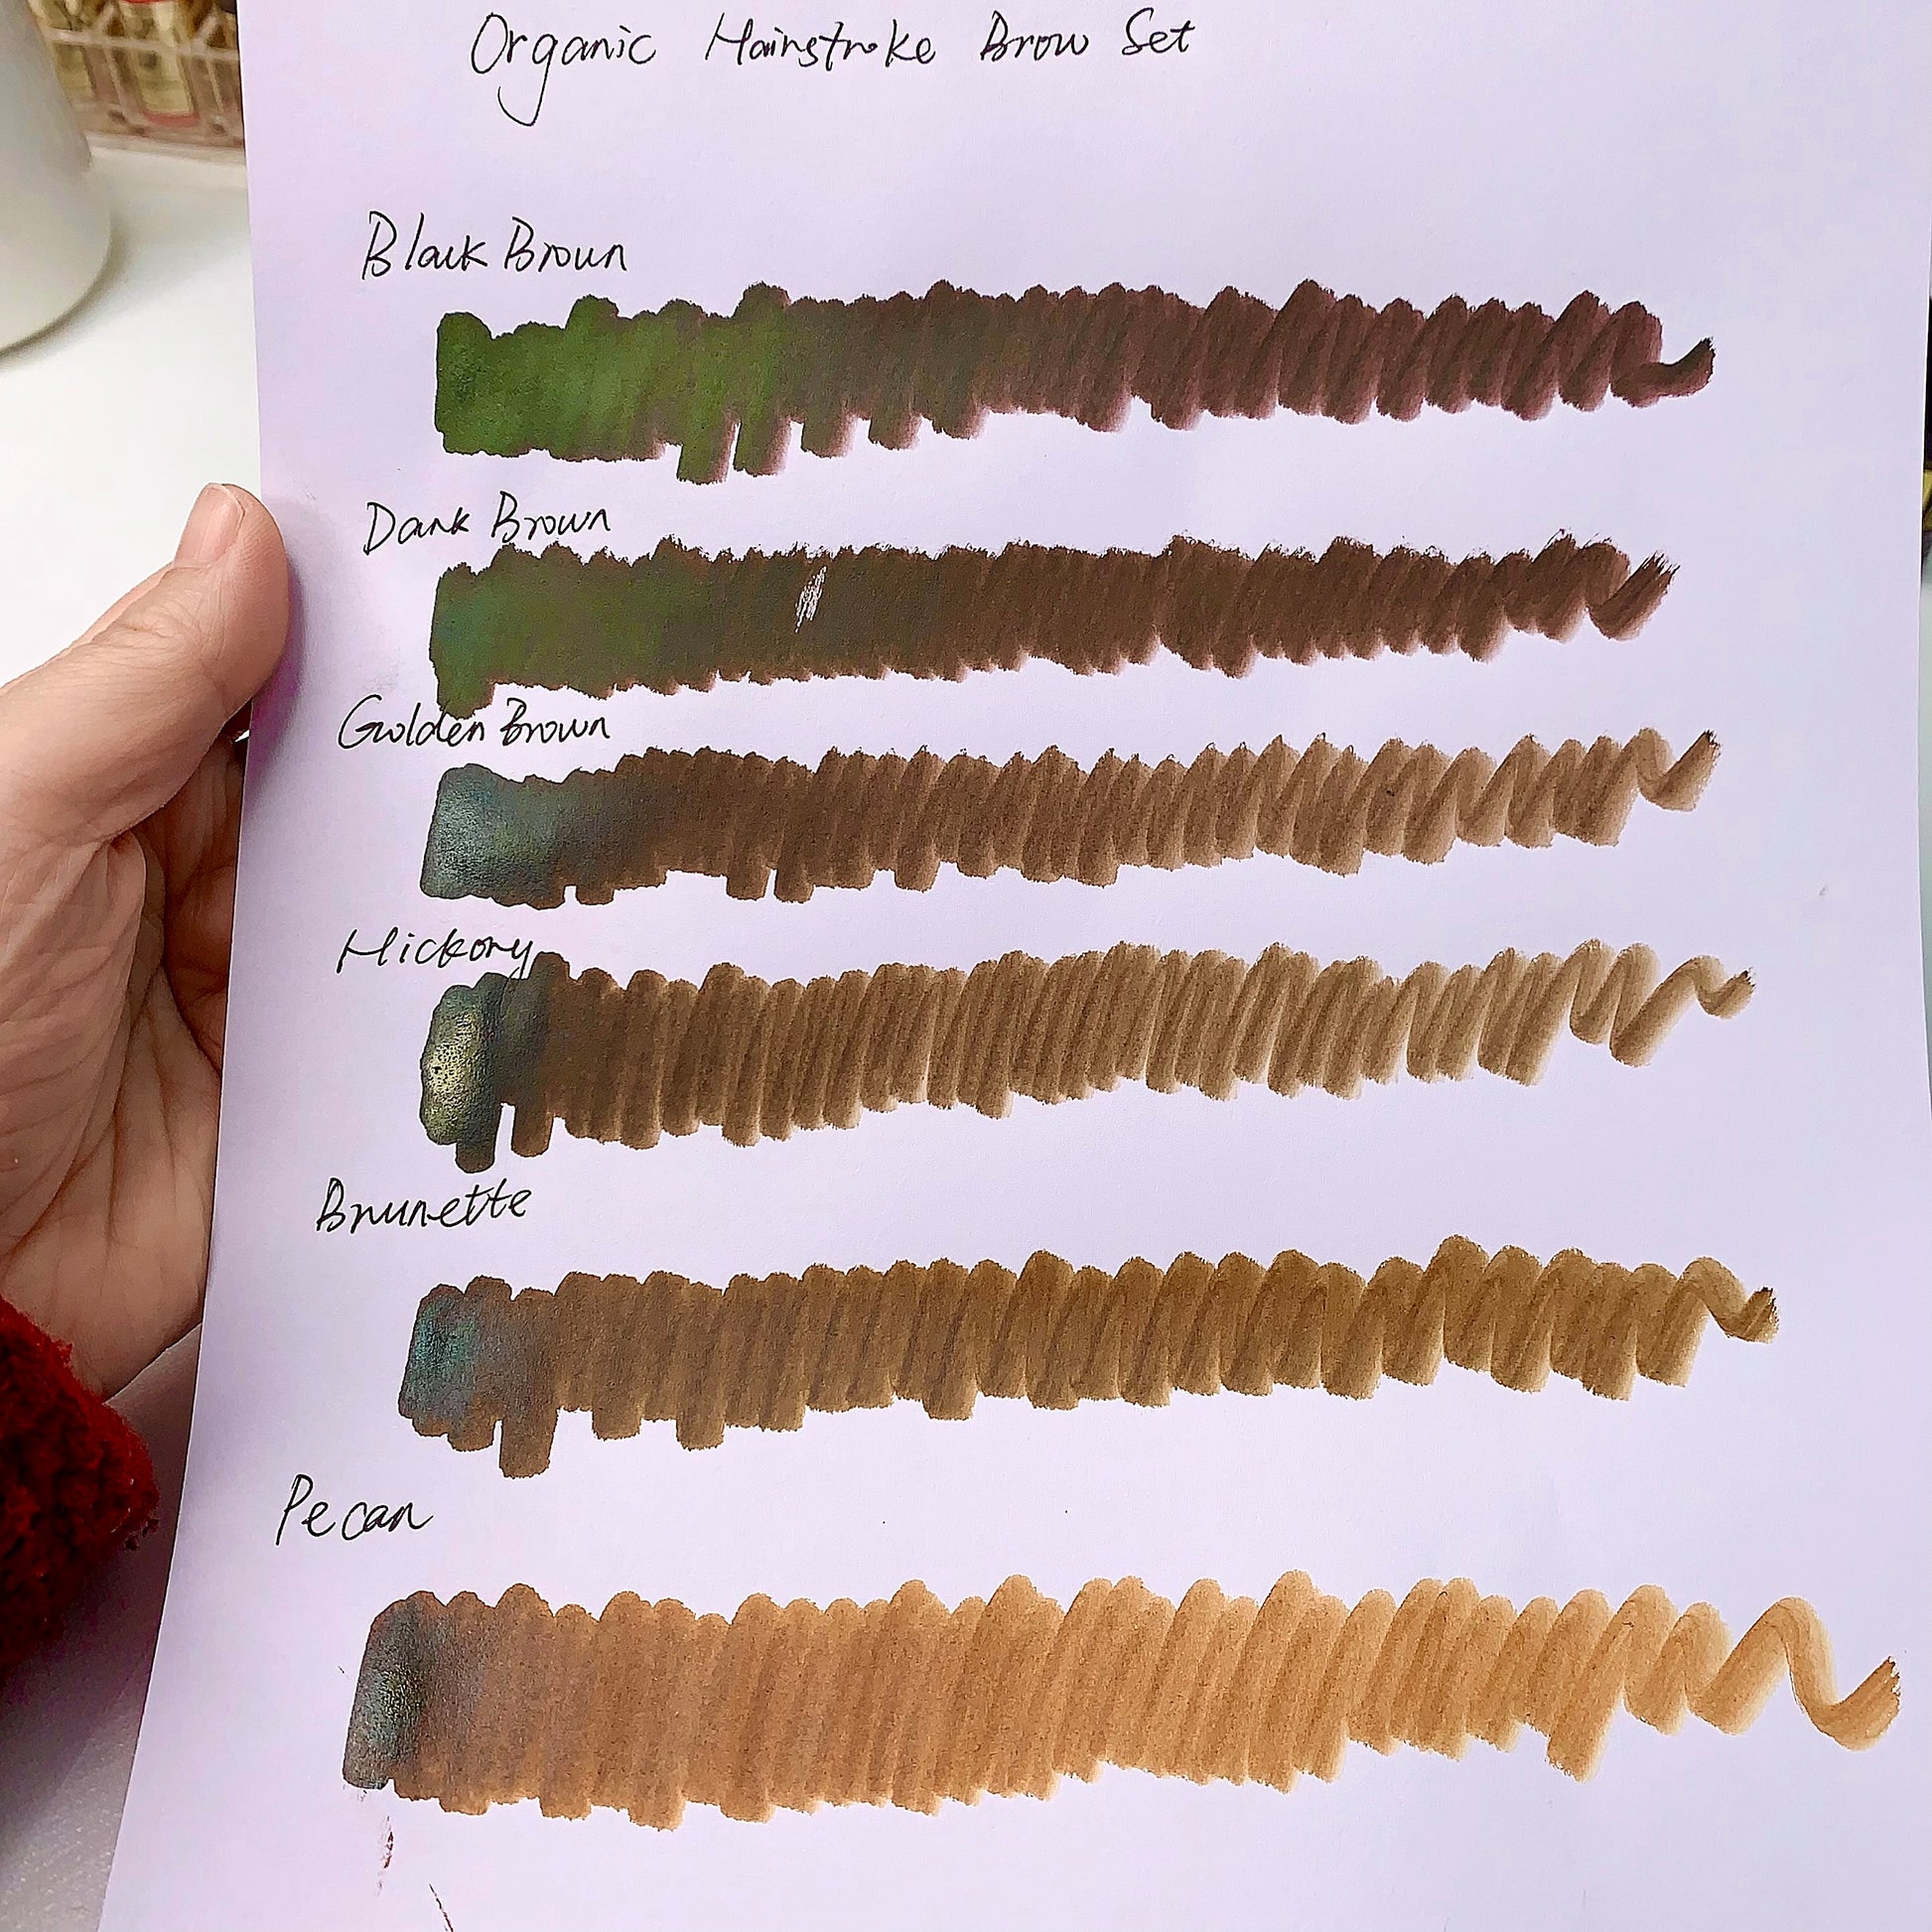 Organic Hairstroke Brow Set
Black Brown
Dark Brown
Golden Brown
Hickory
Brunette
Pecan